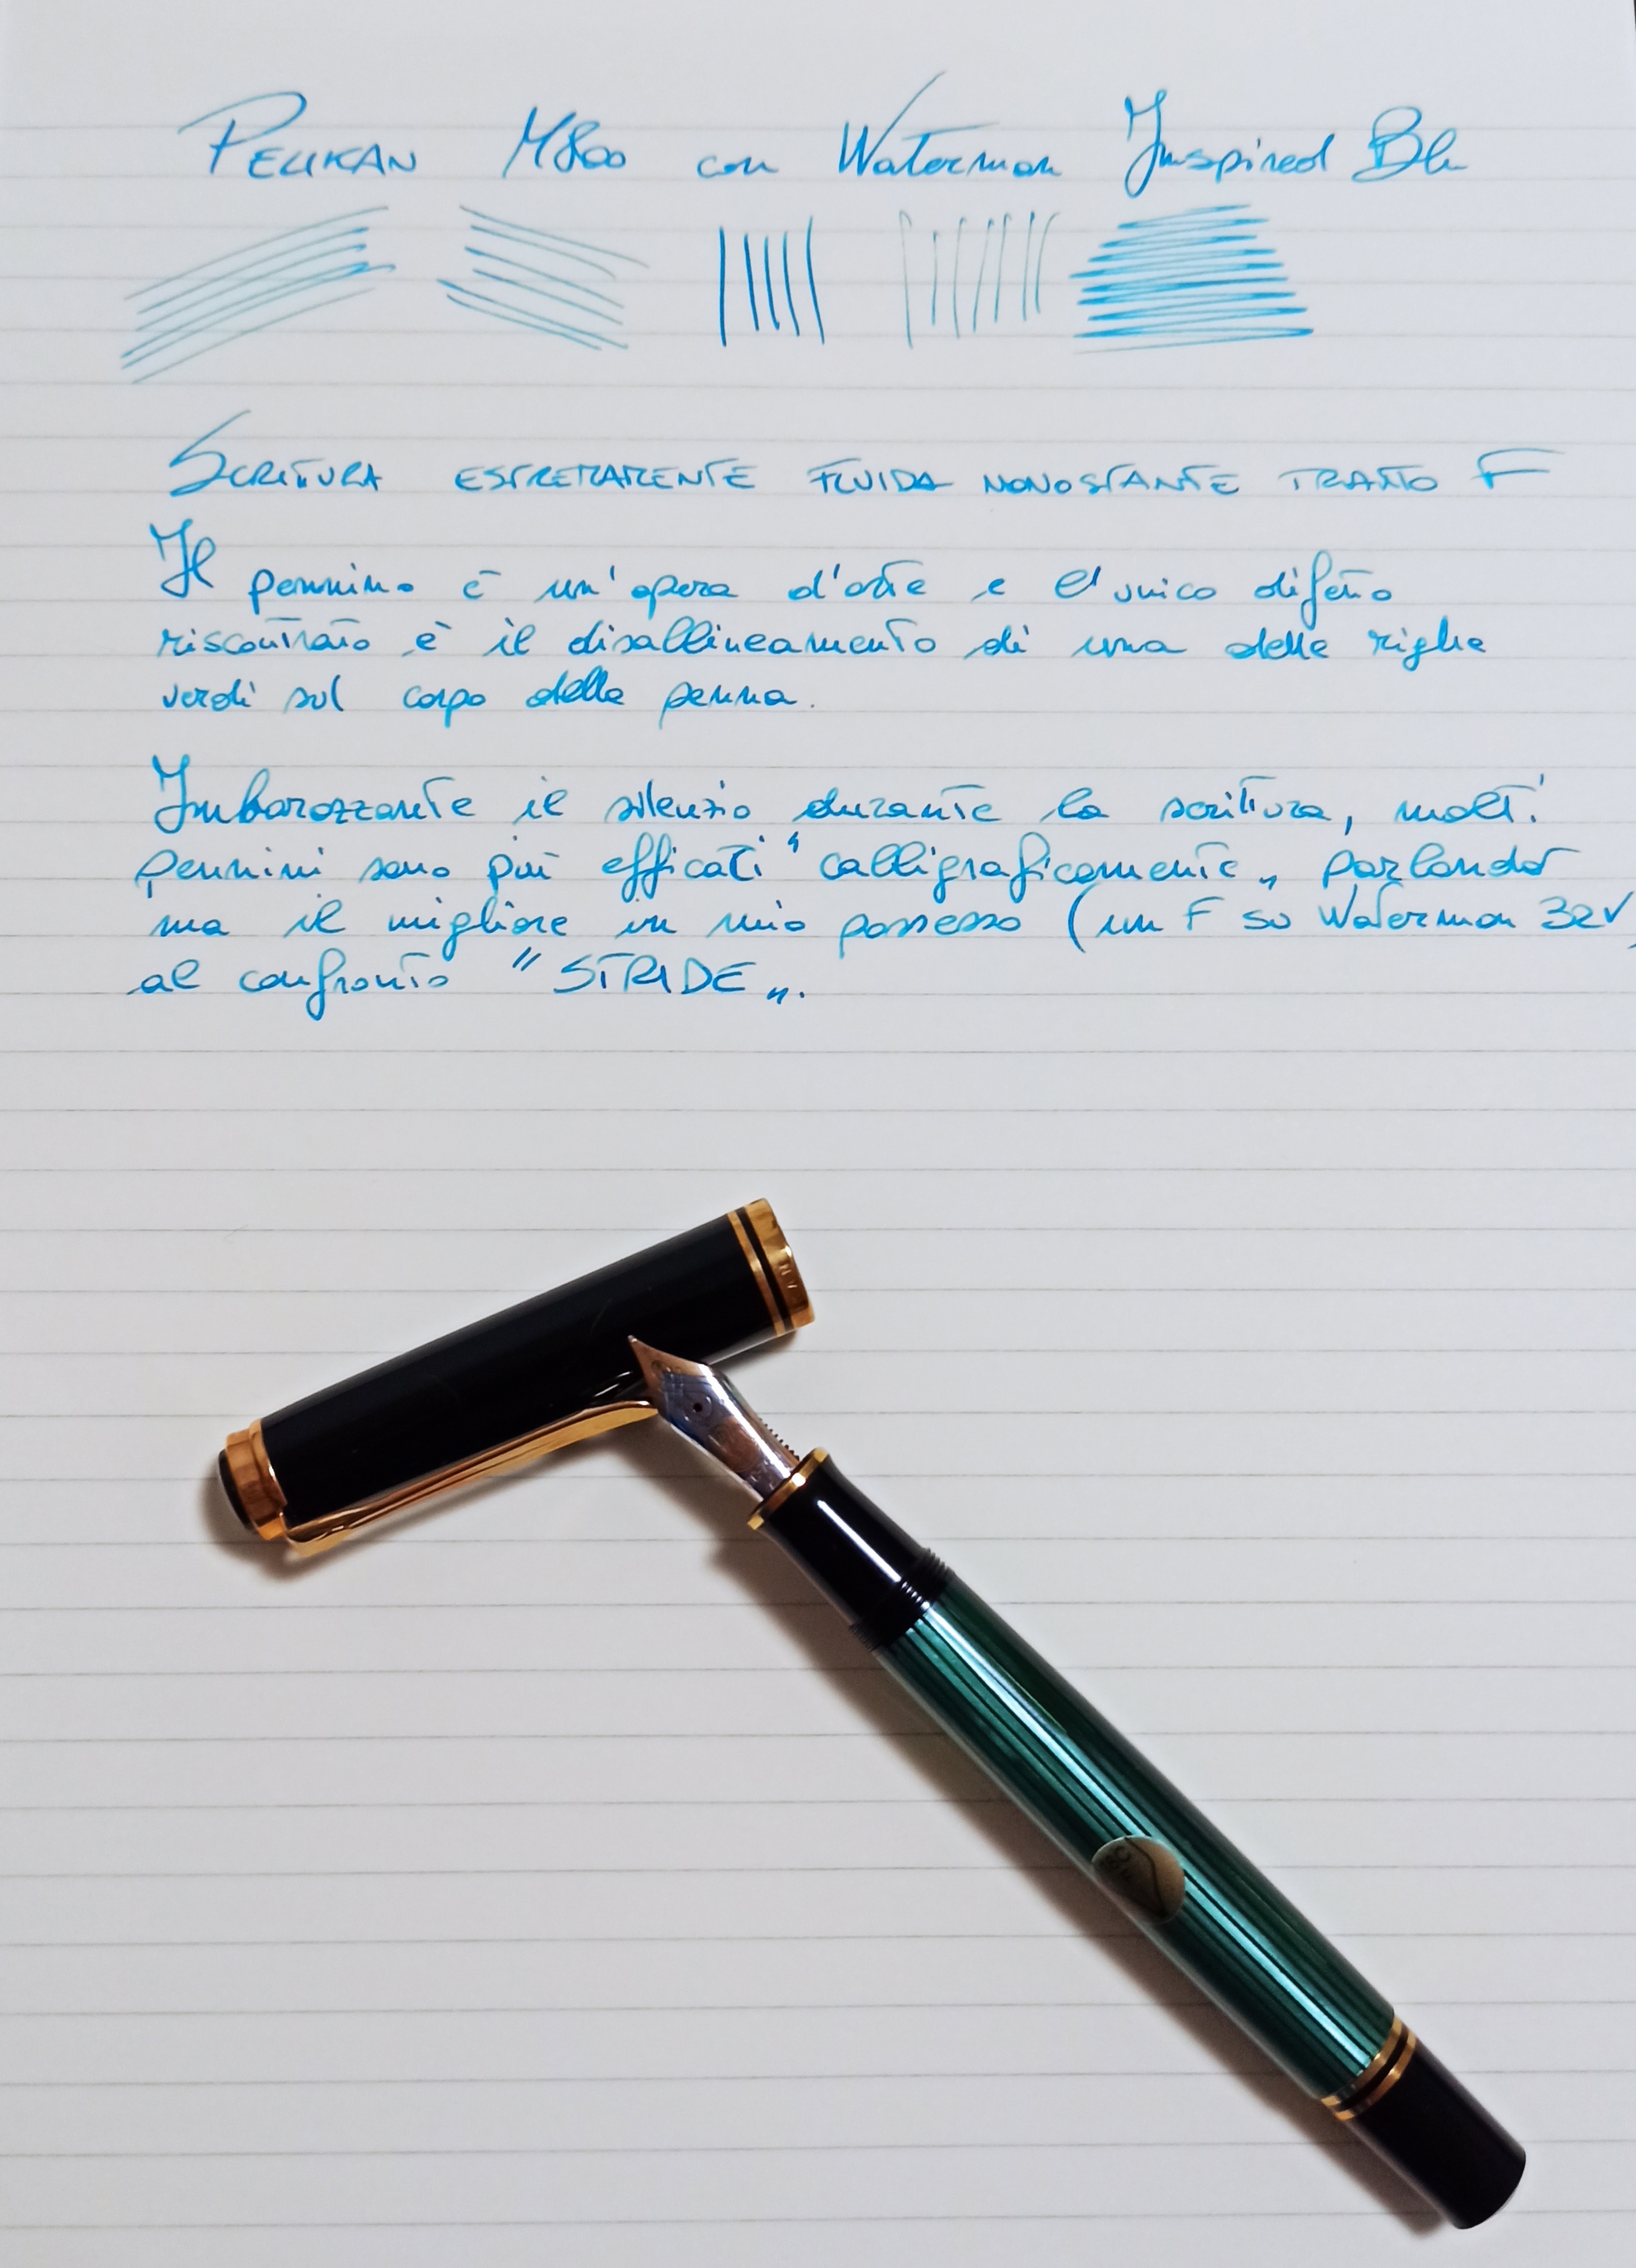 PELIKAN M800 con Waterman Inspired Bl
SCRITTURA ESTREMAMENTE FLUIDA NONOSTANTE TRATTO F
Il pennino è un'opera d'arte e l'unico difetto
riscontrato è il disallineamento di una delle righe
verdi sul corpo della penna.
Imbarazzante il silenzio durante la scrittura, molti
pennini sono più efficaci "calligraficamente„ parlando
ma il migliore in mio possesso (un F su Waterman 32V)
al confronto "STRIDE„.